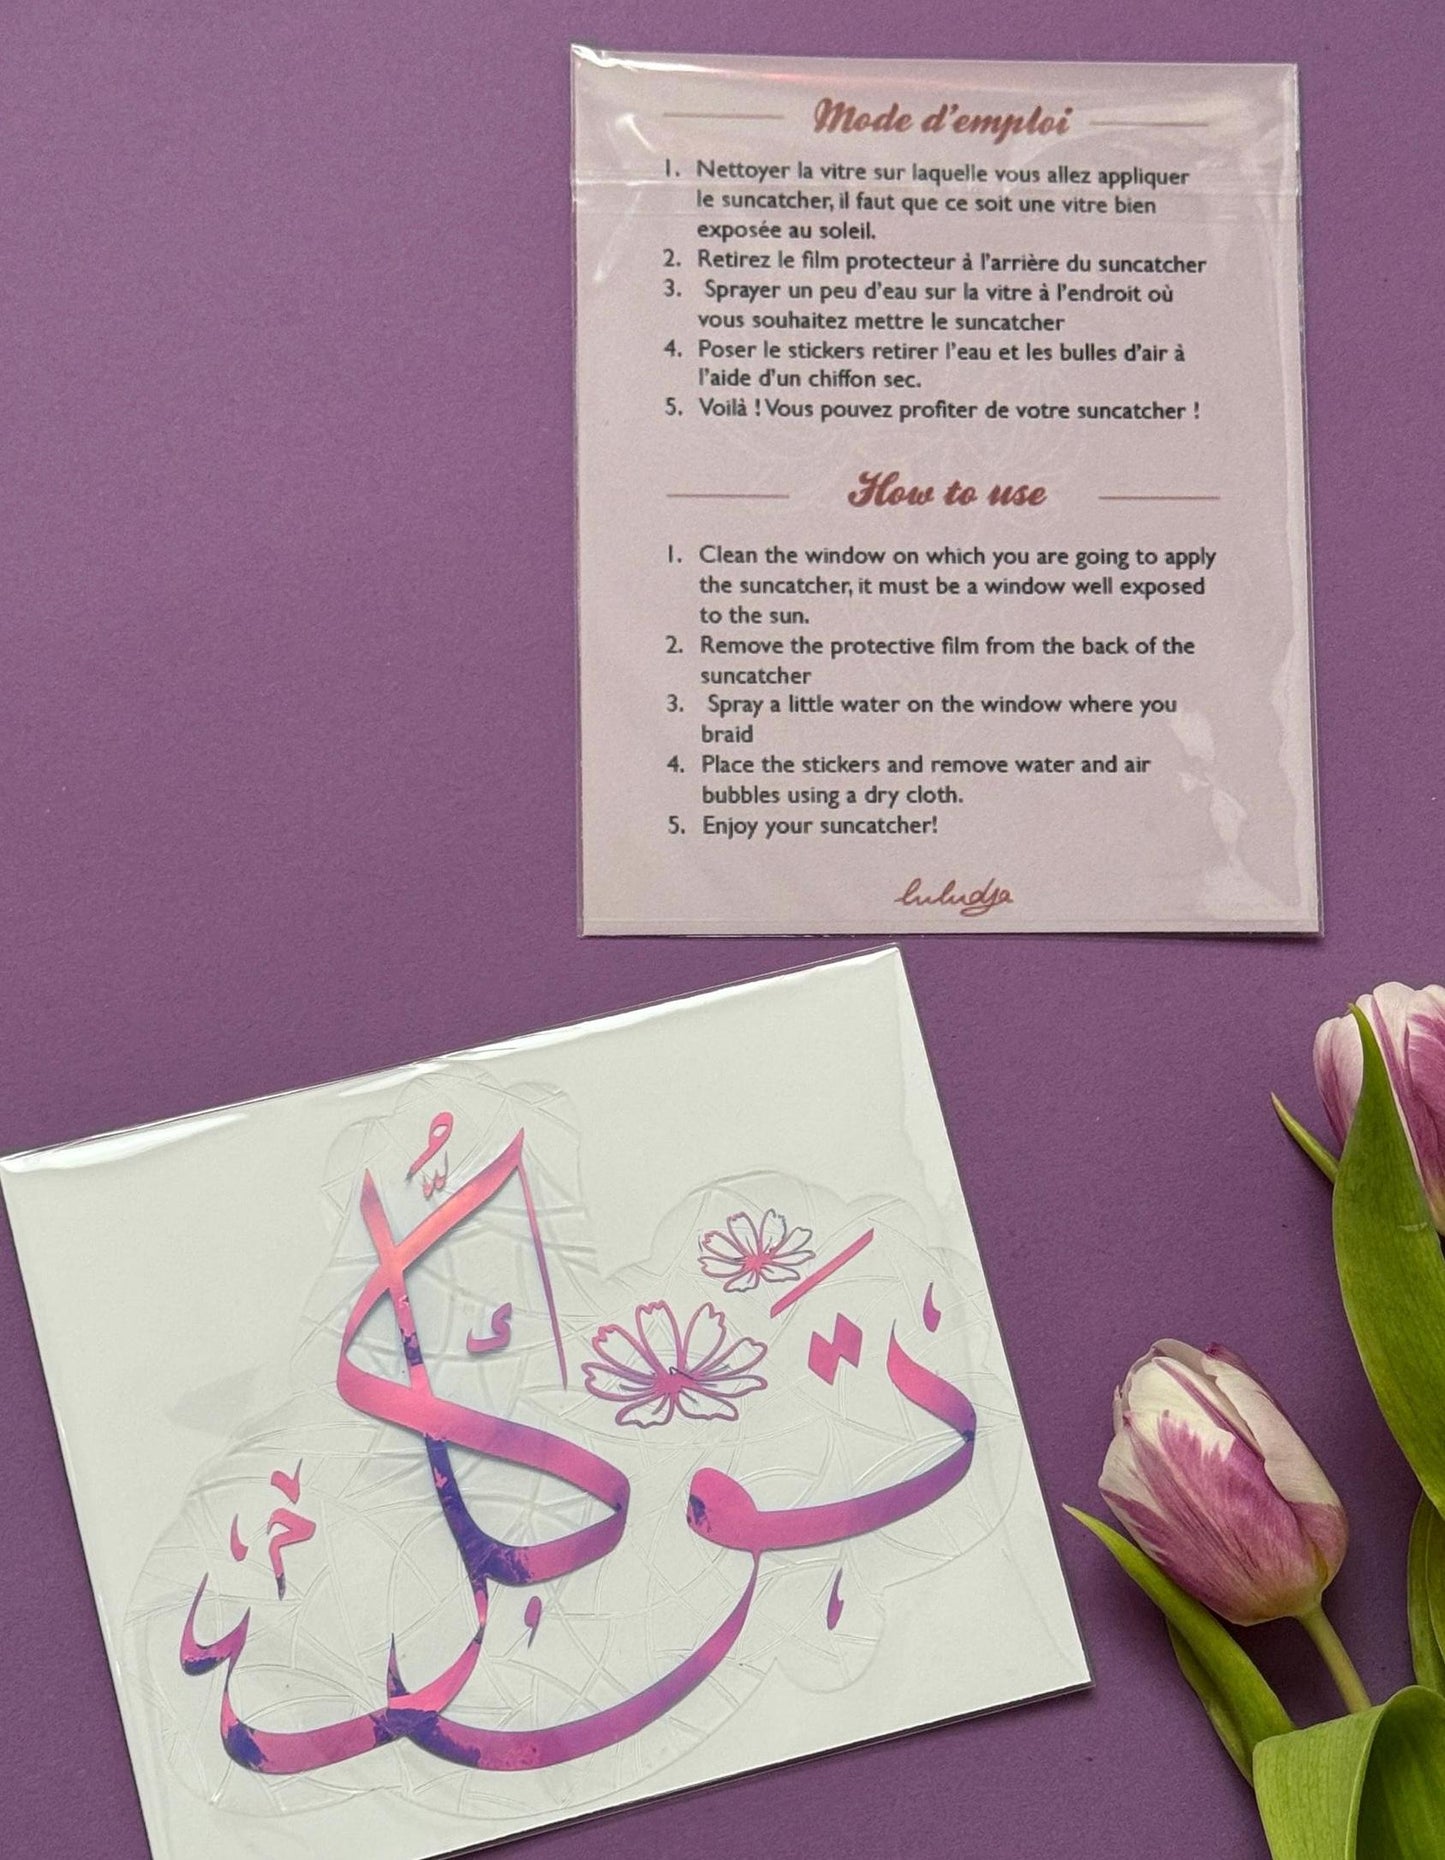 Mode d'emploi
1. Nettoyer la vitre sur laquelle vous allez appliquer
le suncatcher, il faut que ce soit une vitre bien
exposée au soleil.
2. Retirez le film protecteur à l'arrière du suncatcher
3. Sprayer un peu d'eau sur la vitre à l'endroit où
vous souhaitez mettre le suncatcher
4. Poser le stickers retirer l'eau et les bulles d'air à
l'aide d'un chiffon sec.
5. Voilà ! Vous pouvez profiter de votre suncatcher !
How to use
1. Clean the window on which you are going to apply
the suncatcher, it must be a window well exposed
to the sun.
2. Remove the protective film from the back of the
suncatcher
3. Spray a little water on the window where you
braid
4. Place the stickers and remove water and air
bubbles using a dry cloth.
5. Enjoy your suncatcher!
luludja
توكُّل